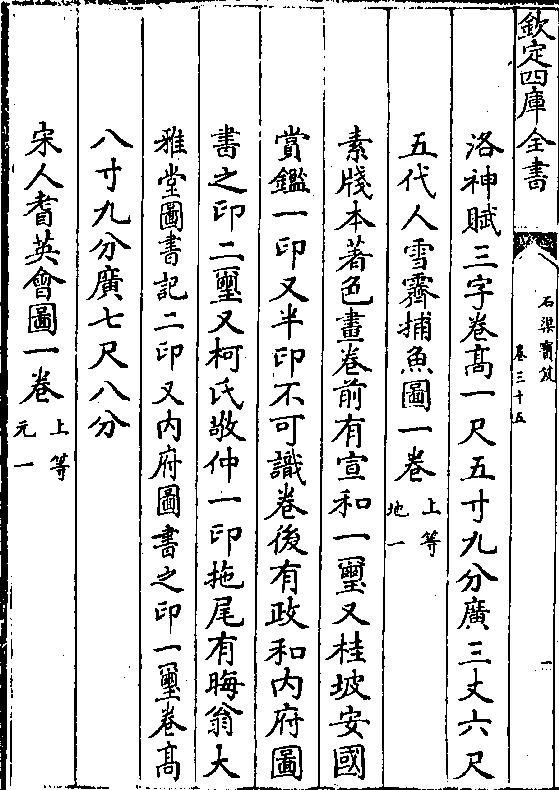 欽定四庫全書
石渠寶笈
卷三十五
一
洛神賦三字卷髙一尺五寸九分廣三丈六尺
五代人雪霽捕魚圖一卷 上等 地一
素牋本著色畫卷前有宣和一璽又桂坡安國
賞鑑一印又半印不可識卷後有政和内府圖
書之印二璽又柯氏敬仲一印拖尾有晦翁大
雅堂圖書記二印又内府圖書之印一璽卷髙
八寸九分廣七尺八分
宋人耆英會圖一卷 上等 元一